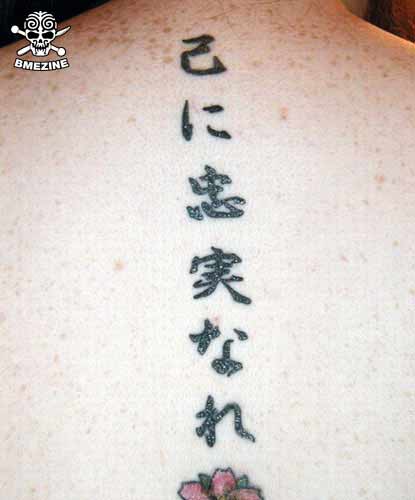 BMEZINE
己に忠実なれ